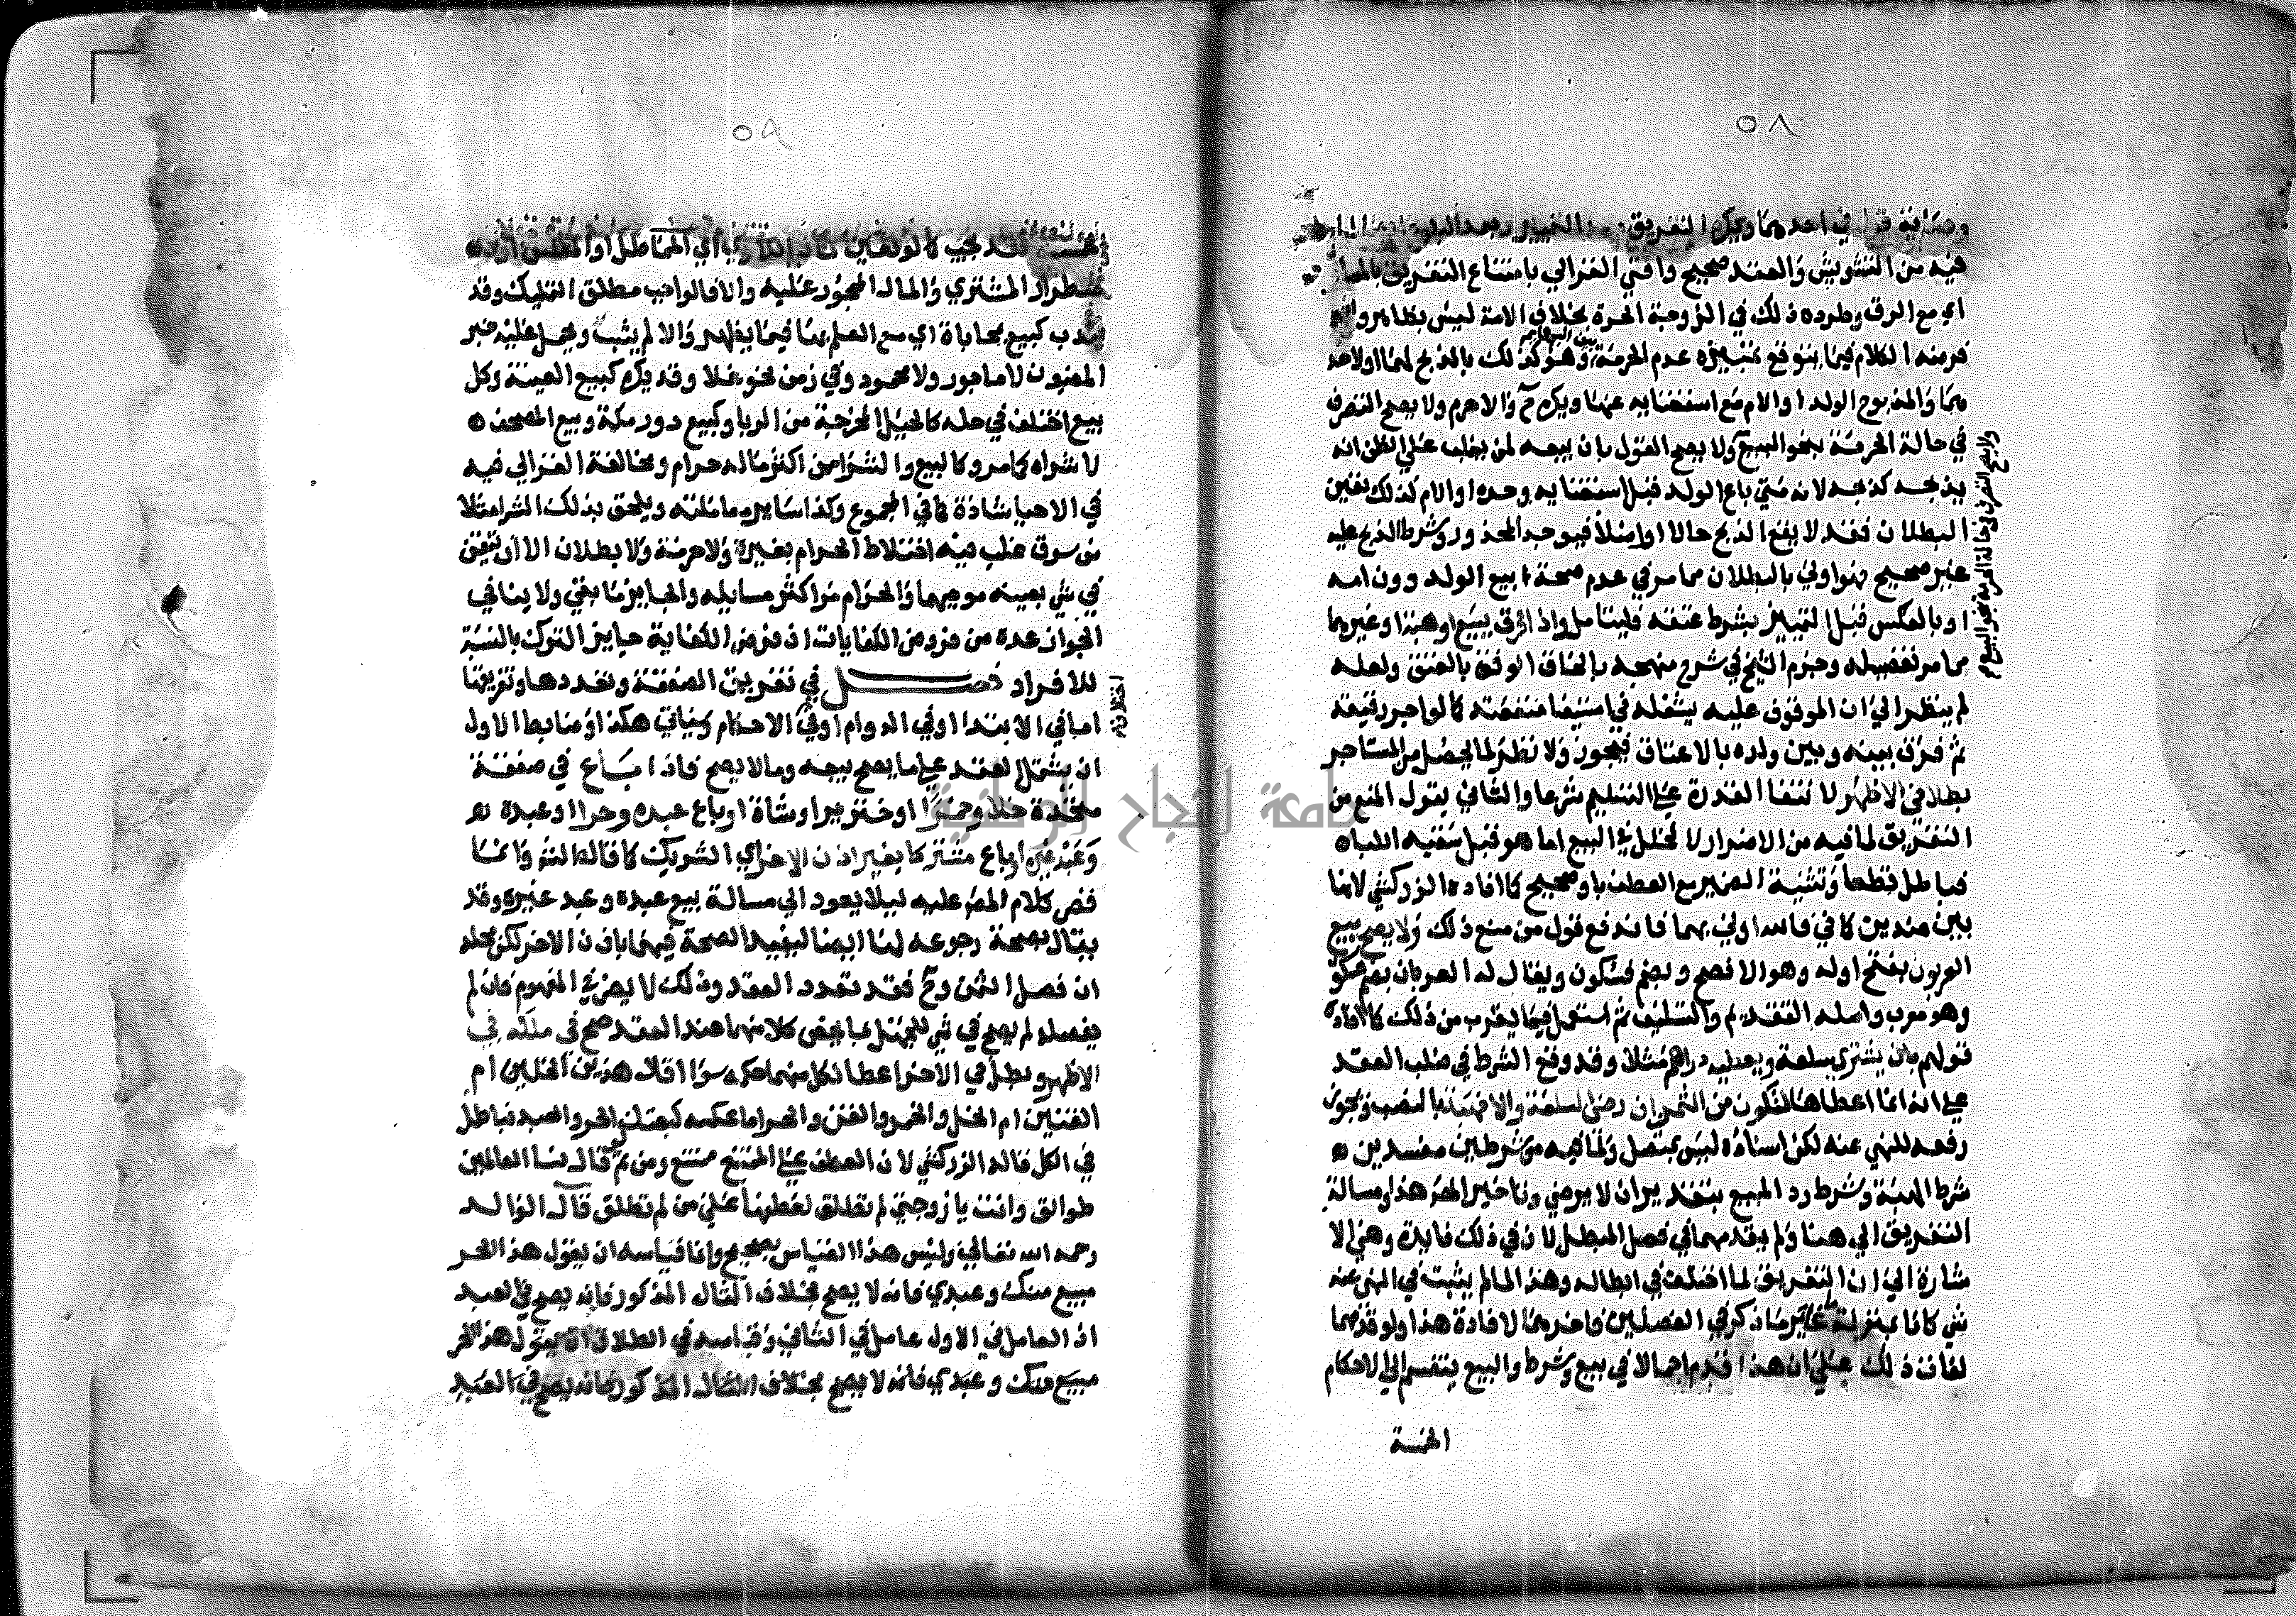 ٥٨
في احدهما ويكره التفريق بعد التمييز وبعد البلوغ
فيه من التشويش والعقد صحيح وافتي الغزالي بامتناع التفريق
اي مع الرق وطرده ذلك في الزوجة الحرة بخلاف الامة ليس بظاهر
الكلام فيما يتوقع عدم الحرمة وهو كذلك بالذبح لهما او لاحد
هما والمذبوح الولد او الام مع استغنايه عنها ويكره ح والا حرم ولا يصح التصرف
في حالة الحرمة بنحو البيع ولا يصح القول بان بيعه لمن يغلب علي الظن انه
يذبحه كذبحه لانه متي باع الولد قبل استغنايه وحده او الام كذلك تعين
البطلان فقد لا يقع الذبح حالا او اصلا فيوجد المحذور وشرط الذبح عليه
غير صحيح فهو اولي بالبطلان مما مر في عدم صحة بيع الولد دون امه
او بالعكس قبل التمييز بشرط عتقه فليتامل واذا فرق ببيع او هبة او غيرهما
مما مر تفصيله وجزم الشيخ في شرح منهجه بالحاق الوقف بالعتق ولعله
لم ينظر الي ان الموقوف عليه يشغله في استيفا منفعته كما لو اجر رقيقه
ثم فرق بينه وبين ولده بالاعتاق فيجوز ولا نظر لما يحصل من المستاجر
بطلا في الاظهر لانتفا القدرة علي التسليم شرعا والثاني يقول المنع من
التفريق لما فيه من الاضرار لا لخلل في البيع اما هو قبل سقيه اللباء
فباطل قطعا وتثنية الضمير مع العطف باو صحيح كما افاده الزركشي لانها
بين ضدين كما في فالله اولي بهما فاندفع قول من منع ذلك ولا يصح بيع
العربون بفتح اوله وهو الافصح وبضم فسكون ويقال له العربان بضم فسكون
وهو معرب واصله التقديم والتسليف ثم استعمل فيما يقرب من ذلك كما افاده
قولهم بان يشتري سلعة ويعطيه دراهم مثلا وقد وقع الشرط في صلب العقد
علي انه انما اعطاها لتكون من الثمن ان رضي السلعة والا فهبة بالنصب ويجوز
رفعه للنهي عنه لكن اسناده ليس بمتصل ولما فيه من شرطين مفسدين
شرط الهبة وشرط رد المبيع بتقدير ان لا يرضي وتاخير المصنف هذا ومسالة
التفريق الي هنا ولم يقدمهما في فصل المبطل لان في ذلك فايدة وهي الا
شارة الي ان التفريق لما اختلف في ابطاله وهذا لما لم يثبت في النهي عنه
شي كانا بمنزلة غاير ما ذكر في الفصلين فاخرهما لافادة هذا ولو قدمهما
لفات ذلك علي ان هذا قدم اجمالا في بيع وشرط والبيع ينقسم الي الاحكام
الخمسة
ولا يصح التصرف في حالة الحرمة بنحو البيع
٥٩
فقد يجب كما لو تعين
لاضطرار المشتري والمال المحجور عليه والا فالواجب مطلق التمليك وقد
يندب كبيع بمحاباة اي مع العلم بها فيما يظهر والا لم يثب ويحمل عليه خبر
المغبون لا ماجور ولا محمود وفي زمن نحو غلا وقد يكره كبيع العينة وكل
بيع اختلف في حله كالحيل المخرجة من الربا وكبيع دور مكة وبيع المصحف
لا شراه كما مر وكالبيع والشرا من اكثر ماله حرام ومخالفة الغزالي فيه
في الاحيا شاذة كما في المجموع وكذا ساير معاملته ويلحق بذلك الشرا مثلا
من سوق غلب فيه اختلاط الحرام بغيره ولا حرمة ولا بطلان الا ان تيقن
في شي بعينه موجبهما والحرام مر اكثر مسايله والجايز ما بقي ولا ينافي
الجواز عده من فروض الكفايات اذ فرض الكفاية جايز الترك بالنسبة
للافراد فصــــل في تفريق الصفقة وتعددها وتفريقها
اما في الابتدا او في الدوام او في الاحكام وسياتي هكذا وضابط الاول
ان يشتمل العقد علي ما يصح بيعه وما لا يصح فاذا باع في صفقة
متحدة خلا وخمرا او خنزيرا وشاة او باع عبده وحرا او عبده
وعبد غيره او باع مشتركا بغير اذن الاخر اي الشريك كما قاله الشرح وانما
قص كلام المص عليه ليلا يعود الي مسالة بيع عبده وعبد غيره وقد
يقال بصحة رجوعه لهما ايضا ليفيد الصحة فيهما باذن الاخر لكن محله
ان فصل الثمن وح فقد تعدد العقد وذلك لا يضر في المفهوم فان لم
يفصله لم يصح في شي للجهل بما يخص كلا منهما عند العقد صح في ملكه في
الاظهر وبطل في الاخر اعطا لكل منهما حكمه سوا اقال هذين الخلين ام
القنين ام الخل والخمر والقن والحر اما عكسه كبعتك الحر والعبد فباطل
في الكل قاله الزركشي لان العطف علي الممتنع ممتنع ومن ثم لو قال نسا العالمين
طوالق وانت يا زوجتي لم تطلق لعطفها علي من لم تطلق قال الوالد
رحمه الله تعالي وليس هذا القياس بصحيح وانما قياسه ان يقول هذا الحر
مبيع منك وعبدي فانه لا يصح بخلاف المثال المذكور فانه يصح في العبد
اذ العامل في الاول عامل في الثاني وقياسه في الطلاق ان يقول هذا الحر
مبيع منك وعبدي فانه لا يصح بخلاف المثال المذكور فانه يصح في العبد
جامعة النجاح الوطنية